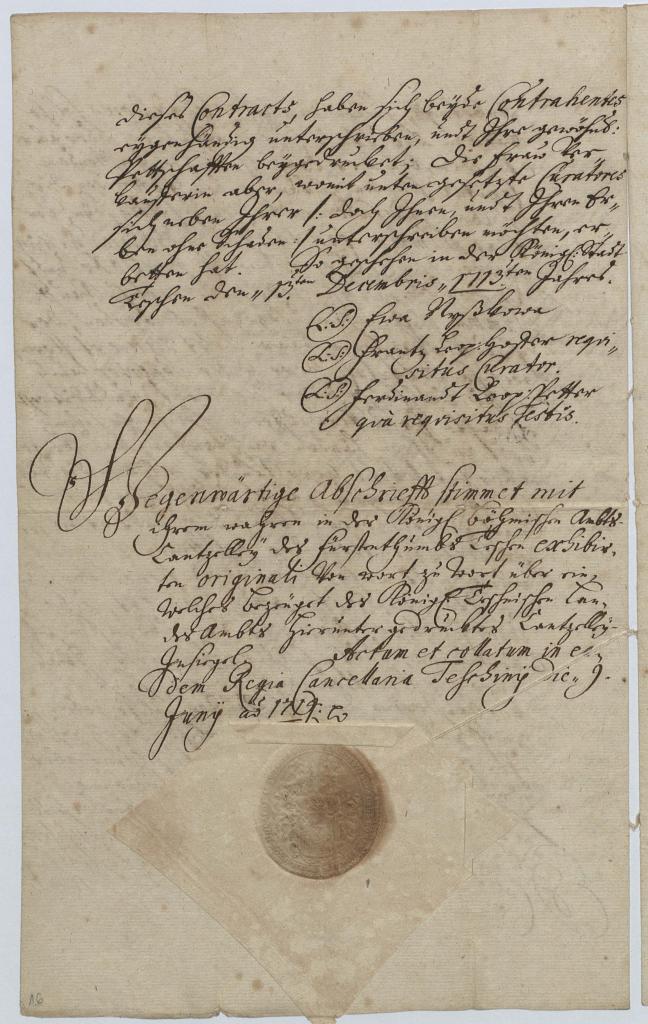 dieses Contracts haben sich beyde Contrahentes
eygenhändig unterschrieben, undt Ihre gewöhnl:
Pettschafften beygedrucket; die Frau Ver
kaufferin aber, womit unten gesetzte Curatores
sich neben Ihrer /: doch Ihnen, undt Ihren Er-
ben ohne Schaden :/ unterschreiben möchten, er-
betten hat. So geschehen in der Königl: Stadt
Teschen den 13ten Decembris 1713ten Jahres.
(L.S.) Ewa Rysskowa
(L.S.) Frantz Leop: Hoffer requi-
situs Curator.
(L.S.) Ferdinandt Leop: Petter
quà requisitus Testis.
Gegenwärtige Abschriefft stimmet mit
ihrem wahren in der Königl böhmischen Ambts
Cantzelley des Furstenthumbs Teschen exhibir-
ten originali Von wort zu Wort über ein,
Welches bezeuget des Königl Teschnischen Lan-
des Ambts hierunter gedrucktes Cantzelley-
Insiegel. Actum et collatum in e-
dem Regia Cancellaria Teschinÿ die 9.
Junÿ aõ 1714:
16